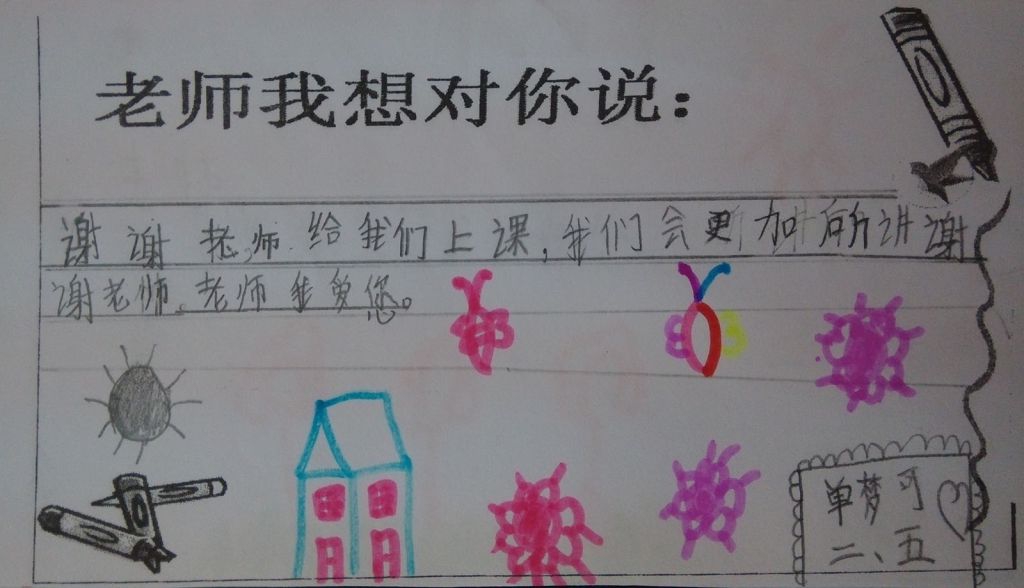 老师我想对你说：
谢谢老师给我们上课，我们会更加讲谢
谢老师。老师我爱您。
单梦可
二、五